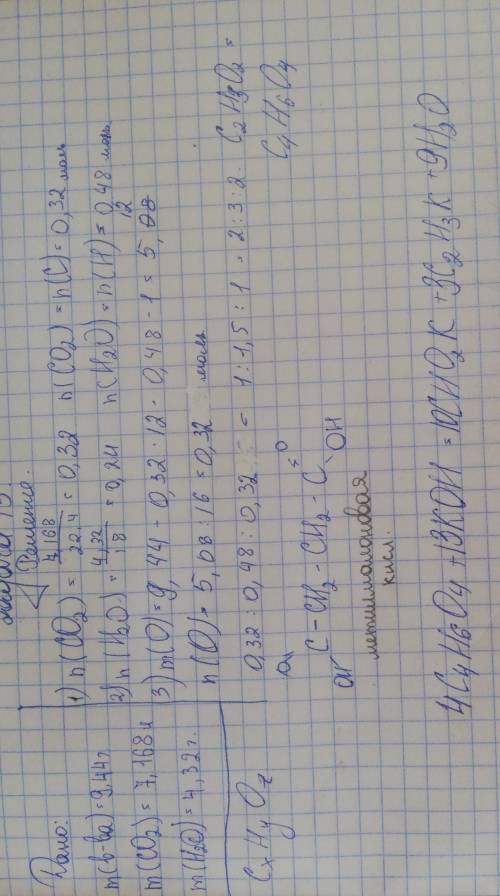 Решение.
Дано:
m(в-ва)=9,44г
m(CO2)=7,168л
m(H2O)=4,32г.
CxHyOz
1) n(CO2)=7,168/22,4=0,32 n(CO2)=n(C)=0,32моль
2) n(H2O)=4,32/18=0,24 n(H2O)=n(H)=0,48моль
3) m(O)=9,44-0,32·12-0,48·1=5,12
n(O)=5,08:16=0,32 моль
0,32:0,48:0,32 = 1:1,5:1=2:3:2. C2H3O2=
C4H6O4
C-CH2-CH2-C
=O
OH
метилмалоновая
кисл.
4C4H6O4+13KOH=10CHO2K+3C2H3K+9H2O